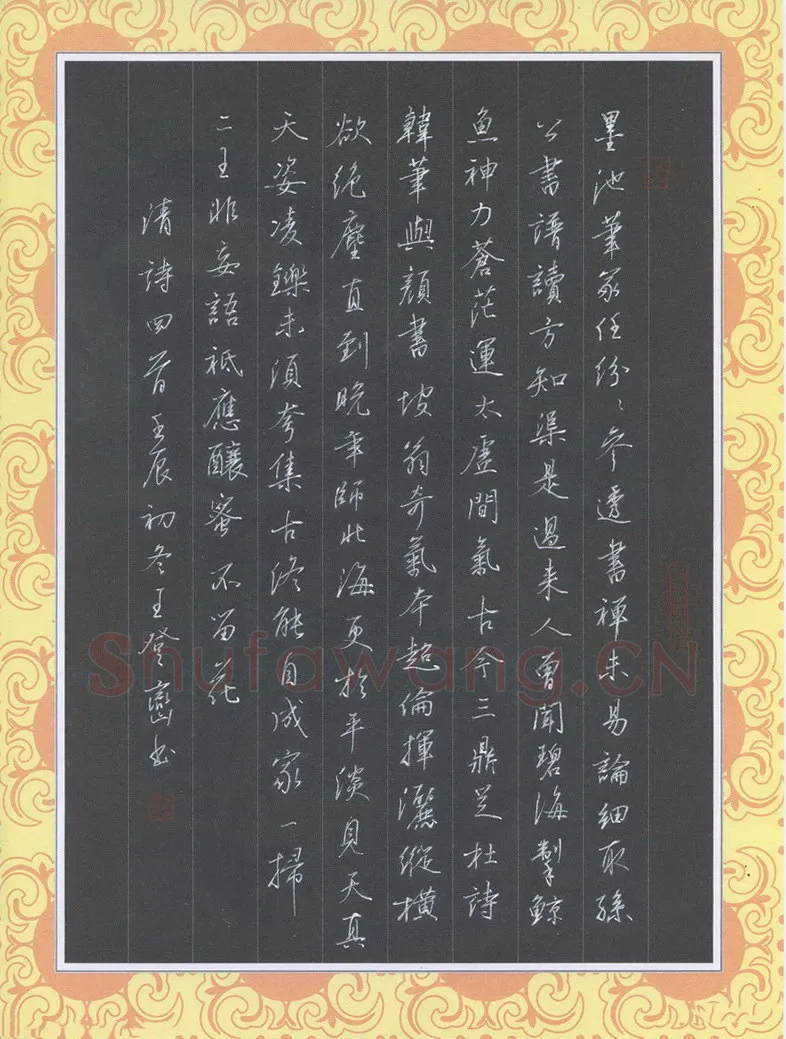 墨池筆冢任紛〻參透書禪未易論細取孫
公書譜讀方知渠是過来人曾聞碧海掣鲸
魚神力蒼茫運太虚間氣古今三鼎足杜詩
韓筆與顔書坡翁奇氣本超倫揮灑縱橫
欲絶塵直到晚年師北海更於平淡見天真
天姿凌鑠未須夸集古终能自成家一掃
二王非妄語祗應釀蜜不留花
清詩四首壬辰初冬王登巒书
Shufawang.CN